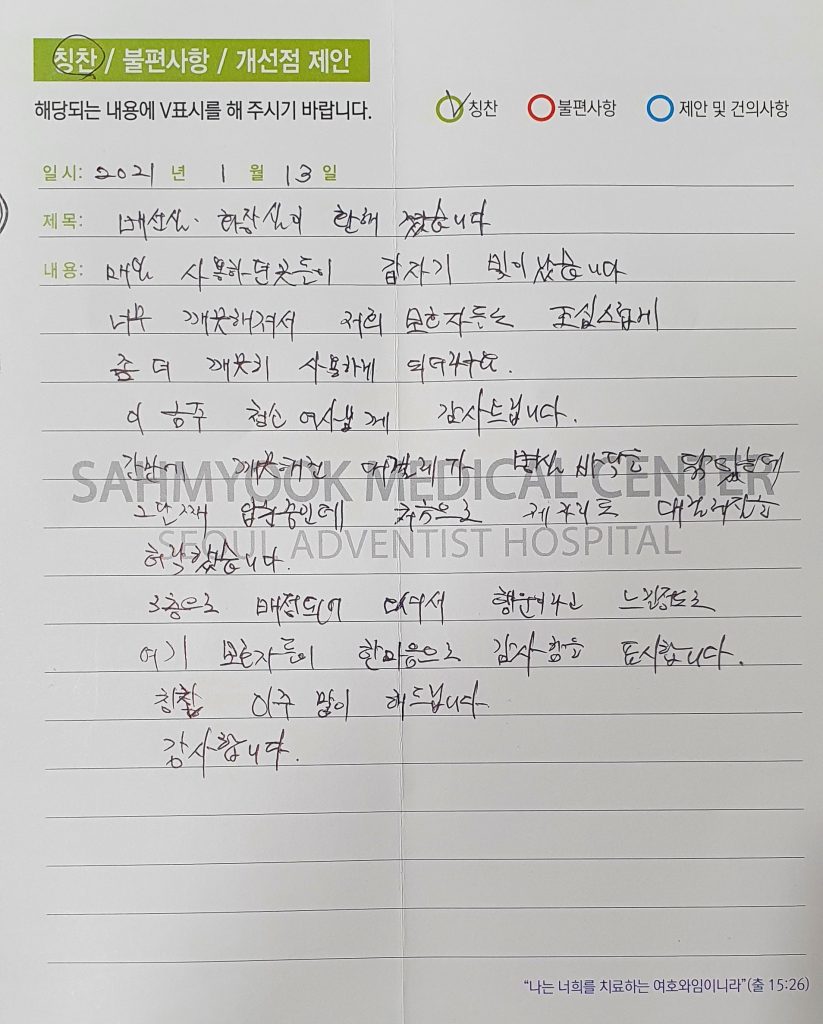 칭찬 / 불편사항 / 개선점 제안
해당되는 내용에 V표시를 해 주시기 바랍니다. 칭찬 불편사항 제안 및 건의사항
일시: 2021 년 1 월 13 일
제목: 배선실. 화장실이 환해 졌습니다
내용: 매일 사용하던곳들이 갑자기 빛이 났습니다
너무 깨끗해져서 저희 보호자들도 조심스럽게
좀 더 깨끗히 사용하게 되더라구요.
이 층주 청소 여사님께 감사드립니다.
간밤에 깨끗해진 병실 바닥을
입원중인데 처음으로
허락했습니다.
3층으로 배정되어 행운이라고 느낄정도로
여기 보호자들이 한마음으로 감사함을 표시합니다.
칭찬 아주 많이 해드립니다
감사합니다.
SAHMYOOK MEDICAL CENTER
SEOUL ADVENTIST HOSPITAL
“나는 너희를 치료하는 여호와임이니라”(출 15:26)